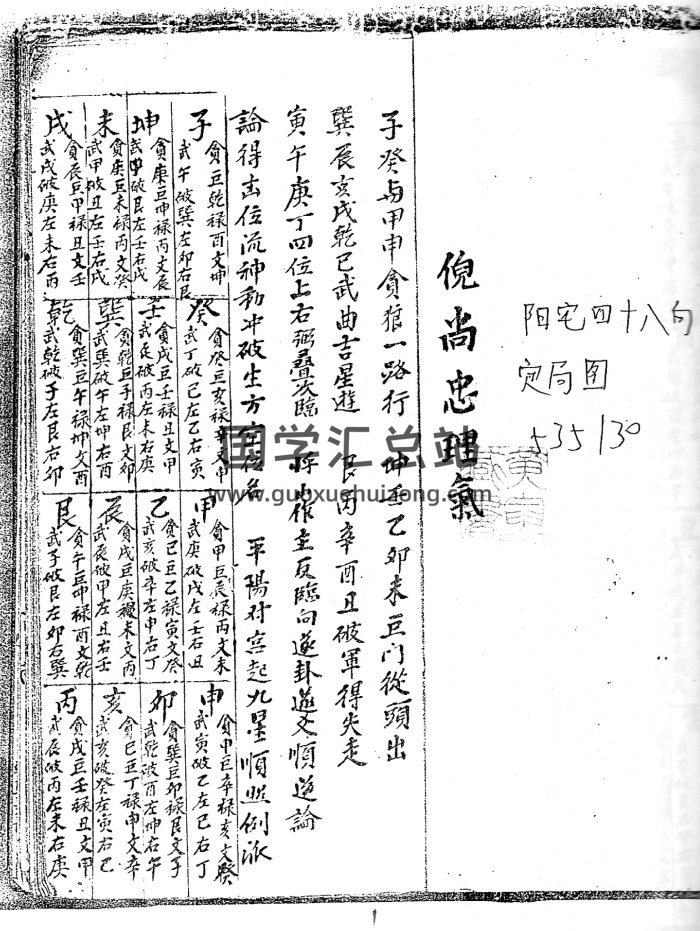 阳宅四十八向
定局图
535/30
倪尚忠理氣
子癸与甲申貪狼一路行 坤壬乙卯未巨门從頭出
巽辰亥戌乾巳武曲吉星遊 艮丙辛酉丑破軍得失走
寅午庚丁四位上右弼叠次臨 將
論得去位流神動冲破生方定位名 平陽对宫起九星順
子
貪巨乾禄酉文坤
武午破巽左卯右艮
坤
貪庚巨坤禄丙文辰
破艮左壬右戌
未
貪庚巨未禄丙文癸
武甲破丑左壬右戌
戌
貪辰巨甲禄丑文壬
武戌破庚左未右丙
癸
貪癸巨亥禄辛文甲
武丁破巳左乙右寅
壬
貪戌巨壬禄丑文甲
武辰破丙左未右庚
巽
貪乾巨子禄艮文卯
武巽破午左坤右酉
乾
貪巽巨午禄坤文酉
武乾破子左艮右卯
甲
貪甲巨辰禄丙文未
武庚破戌左壬右丑
乙
貪巳巨乙禄寅文癸
武亥破辛左申右丁
辰
貪戌巨庚禄未文丙
武辰破甲左丑右壬
艮
貪午巨坤禄酉文乾
武子破艮左卯右巽
申
貪申巨辛禄亥文癸
武寅破乙左巳右丁
卯
貪巽巨卯禄艮文子
武乾破酉左坤右午
亥
貪巳巨丁禄申文辛
武亥破癸左寅右巳
丙
貪戌巨壬禄丑文甲
武辰破丙左未右庚
国学汇总站
www.guoxuehuizong.com
1